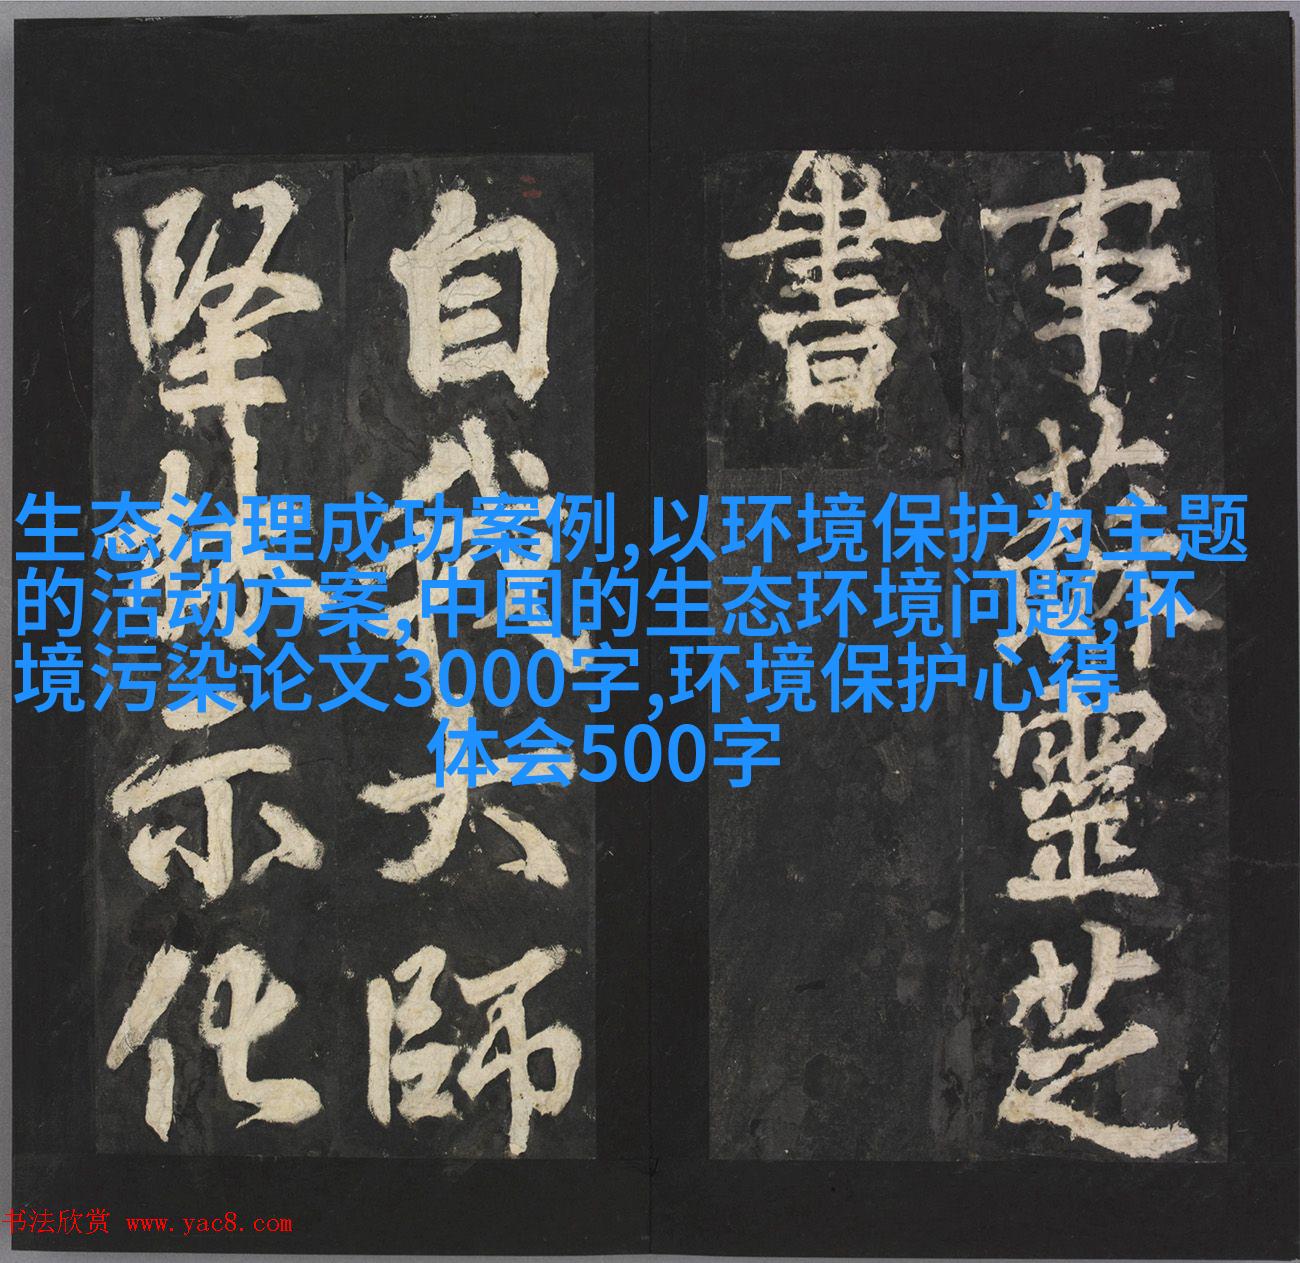 事蘇靈芝
書
自我大師
堅林示化
生态治理成功案例,以环境保护为主题
的活动方案,中国的生态环境问题,环
境污染论文3000字,环境保护心得
体会500字
书法欣赏 www.yac8.com